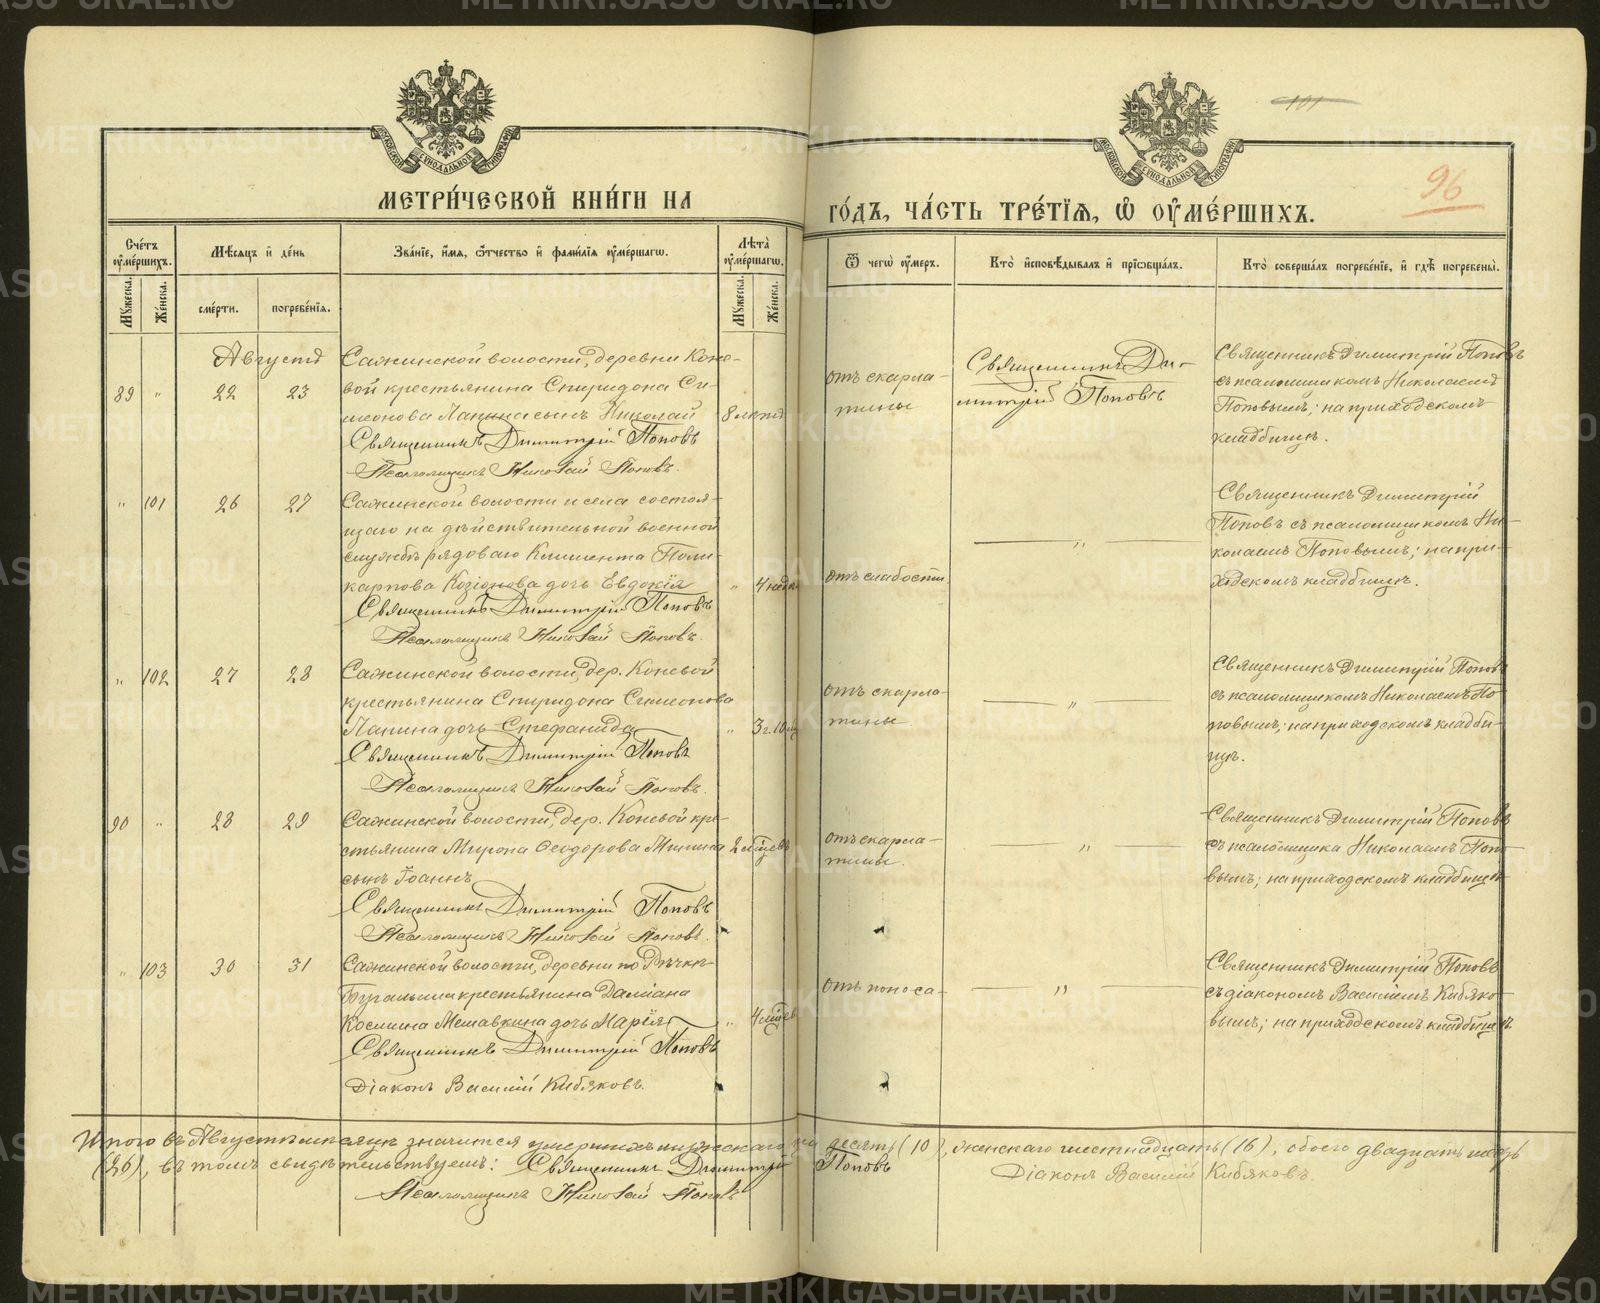 101
96
МЕТРИ́ЧЕСКОЙ КНИ́ГИ НА
ГО́ДЪ, ЧА́СТЬ ТРЕ́ТІѦ, Ѡ҆ ОУ҆МЕ́РШИХЪ.
Сче́тъ оу҆ме́ршихъ.
Мѣ́сѧцъ и҆ де́нь
Зва́нїе, и҆́мѧ, ѻ҆́тчество и҆ фами́лїѧ оу҆ме́ршагѡ.
Лѣ́та оу҆ме́ршагѡ.
Ѿ чегѡ̀ оу҆́меръ.
Кто̀ и҆сповѣ́дывалъ и҆ прїѡбща́лъ.
Кто̀ соверша́лъ погребе́нїе, и҆ гдѣ̀ погребены̀.
Му́жеска.
Же́нска.
сме́рти.
погребе́нїѧ.
Му́жеска.
Же́нска.
Августъ
89 " 22 23
Сажинской волости, деревни Коне-
вой крестьянина Спиридона Си-
меонова Лапина сынъ Николай
8 лѣтъ
Священникъ Димитрій Поповъ
Псаломщикъ Николай Поповъ.
отъ скарла-
тины
Священникъ Ди-
митрій Поповъ
Священникъ Димитрій Поповъ
съ псаломщикомъ Николаемъ
Поповымъ; на приходскомъ
кладбищѣ.
" 101 26 27
Сажинской волости и села состоя-
щаго на дѣйствительной военной
службѣ рядоваго Климента Поли-
карпова Козіонова дочь Евдокія
" 4 нед.
Священникъ Димитрій Поповъ
Псаломщикъ Николай Поповъ.
отъ слабости
"
Священникъ Димитрій
Поповъ съ псаломщикомъ Ни-
колаемъ Поповымъ; на при-
ходскомъ кладбищѣ.
" 102 27 28
Сажинской волости, дер. Коневой
крестьянина Спиридона Симеонова
Лапина дочь Стефанида
" 3 г. 10 м.
Священникъ Димитрій Поповъ
Псаломщикъ Николай Поповъ.
отъ скарла-
тины
"
Священникъ Димитрій Поповъ
съ псаломщикомъ Николаемъ По-
повымъ; на приходскомъ кладби-
щѣ.
90 " 28 29
Сажинской волости, дер. Коневой кре-
стьянина Мирона Ѳеодорова Минина
сынъ Іоаннъ
2 мѣсцевъ
Священникъ Димитрій Поповъ
Псаломщикъ Николай Поповъ.
отъ скарла-
тины.
"
Священникъ Димитрій Поповъ
съ псаломщика Николаемъ Попо-
вымъ; на приходскомъ кладбищѣ
" 103 30 31
Сажинской волости, деревни по Рѣчкѣ-
Бугалышъ крестьянина Даміана
Космина Мешавкина дочь Марія
" 4 мѣсцев
Священникъ Димитрій Поповъ
Діаконъ Василій Кибяковъ.
отъ поноса
"
Священникъ Димитрій Поповъ
съ діакономъ Василіемъ Кибяко-
вымъ; на приходскомъ кладбищѣ
Итого въ Августѣ мѣсяцѣ значится умершихъ мужескаго по десять (10), женскаго шестнадцать (16), обоего двадцать шесть
(26), въ томъ свидѣтельствуемъ: Священникъ Димитрій Поповъ
Діаконъ Василій Кибяковъ.
Псаломщикъ Николай Поповъ
METRIKI.GASO-URAL.RU